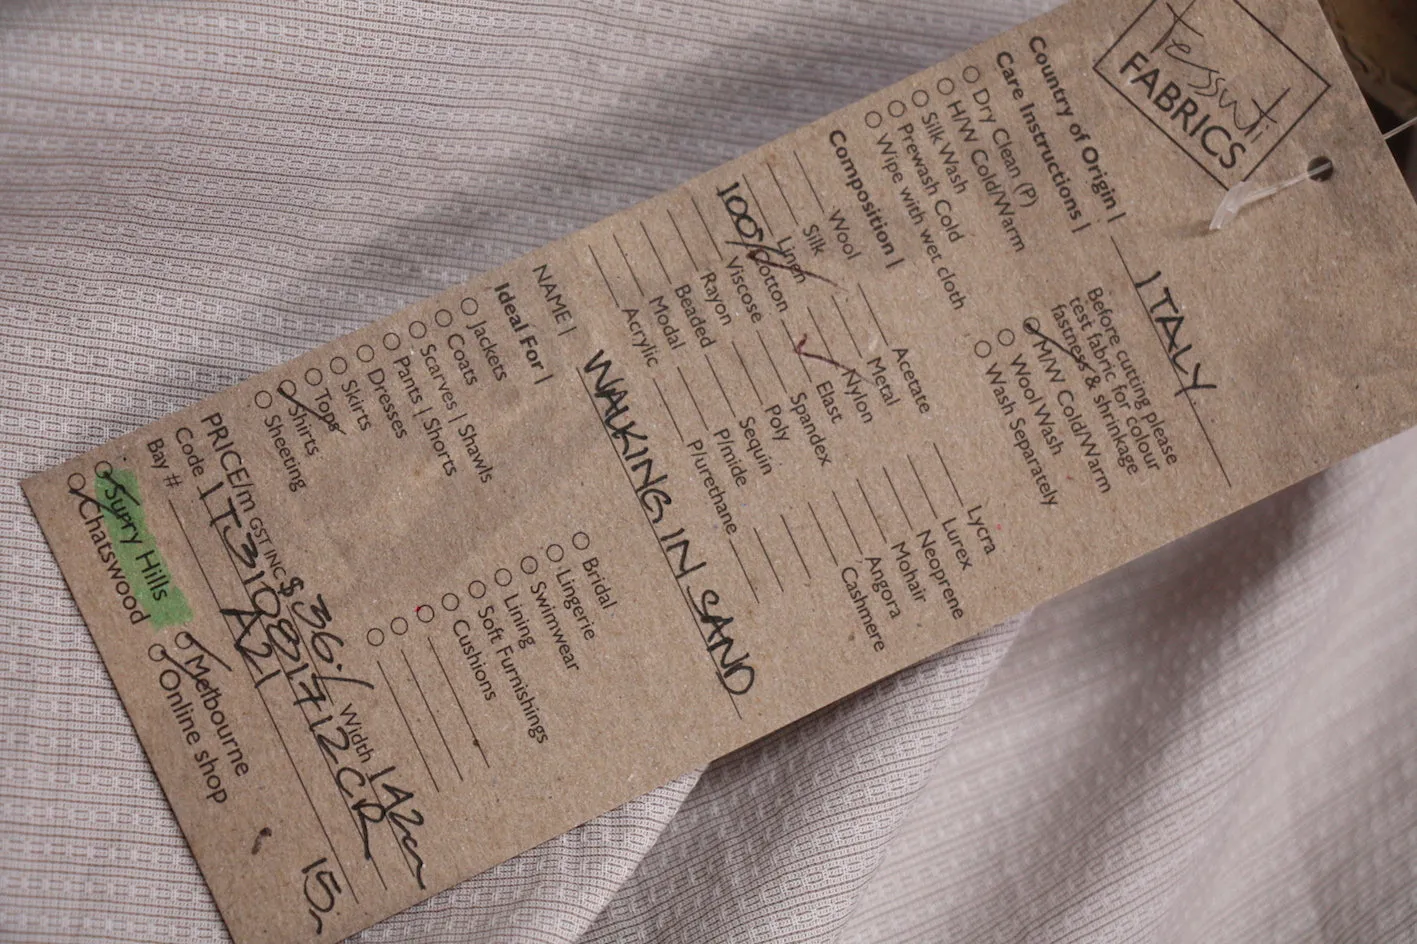 Tessuti
FABRICS
Country of Origin | ITALY
Care Instructions |
Before cutting please
test fabric for colour
fastness & shrinkage
Dry Clean (P)
H/W Cold/Warm
Silk Wash
Prewash Cold
Wipe with wet cloth
M/W Cold/Warm
Wool Wash
Wash Separately
Composition |
Wool
Silk
Linen
100% Cotton
Viscose
Rayon
Beaded
Modal
Acrylic
Acetate
Metal
Nylon
Elast
Spandex
Poly
Sequin
P/mide
P/urethane
Lycra
Lurex
Neoprene
Mohair
Angora
Cashmere
NAME | WALKING IN SAND
Ideal For |
Jackets
Coats
Scarves | Shawls
Pants | Shorts
Dresses
Skirts
Tops
Shirts
Sheeting
Bridal
Lingerie
Swimwear
Lining
Soft Furnishings
Cushions
PRICE/m GST INC $36./ Width 142cm
Code
Bay # A21
15,
Surry Hills
Chatswood
Melbourne
Online shop